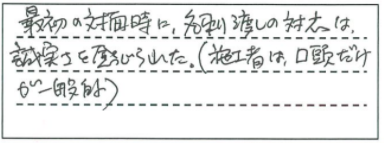 最初の対面時に、名刺渡しの対応は、
誠実さを感じられた。(施工者は、口頭だけ
が一般的)